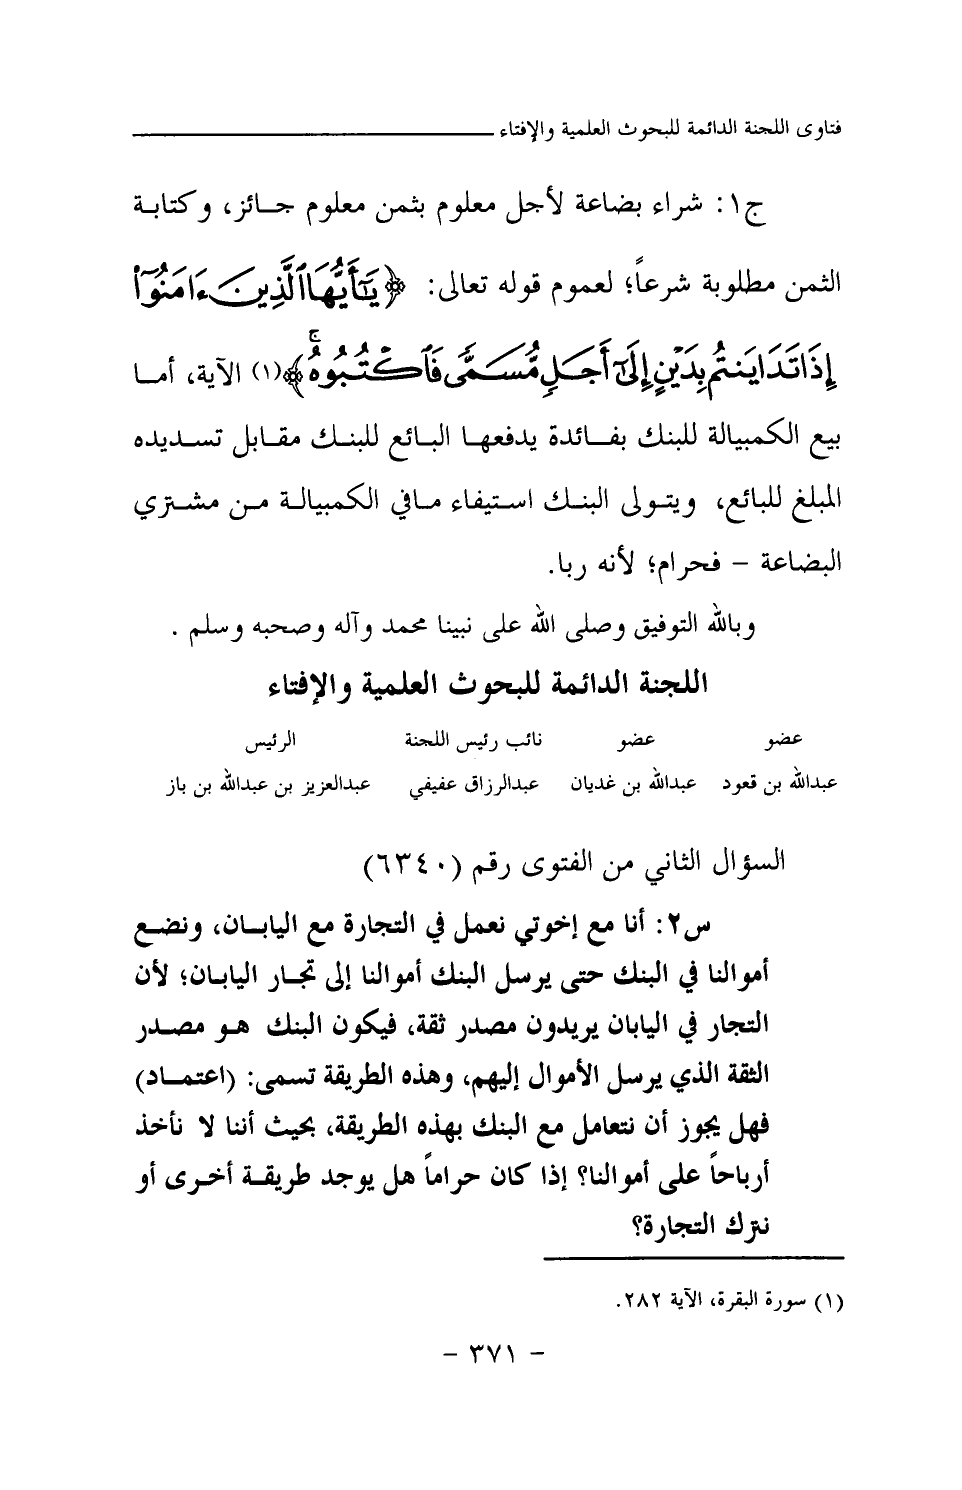 فتاوى اللجنة الدائمة للبحوث العلمية والإفتاء
ج١: شراء بضاعة لأجل معلوم بثمن معلوم جـائز، وكتابـة
الثمن مطلوبة شرعاً؛ لعموم قوله تعالى: ﴿يَٰٓأَيُّهَا ٱلَّذِينَ ءَامَنُوٓا۟
إِذَا تَدَايَنتُم بِدَيْنٍ إِلَىٰٓ أَجَلٍ مُّسَمًّى فَٱكْتُبُوهُ ۚ﴾(١) الآية، أمـا
بيع الكمبيالة للبنك بفـائدة يدفعهـا البـائع للبنـك مقـابل تسـديده
المبلغ للبائع، ويتـولى البنـك استـيفاء مـافي الكمبيالـة مـن مشـتري
البضاعة – فحرام؛ لأنه ربا.
وبالله التوفيق وصلى الله على نبينا محمد وآله وصحبه وسلم .
اللجنة الدائمة للبحوث العلمية والإفتاء
عضو عضو نائب رئيس اللجنة الرئيس
عبدالله بن قعود عبدالله بن غديان عبدالرزاق عفيفي عبدالعزيز بن عبدالله بن باز
السؤال الثاني من الفتوى رقم (٦٣٤٠)
س٢: أنا مع إخوتي نعمل في التجارة مع اليابـان، ونضـع
أموالنا في البنك حتى يرسل البنك أموالنا إلى تجـار اليابان؛ لأن
التجار في اليابان يريدون مصدر ثقة، فيكون البنك هـو مصـدر
الثقة الذي يرسل الأموال إليهم، وهذه الطريقة تسمى: (اعتمـاد)
فهل يجوز أن نتعامل مع البنك بهذه الطريقة، بحيث أننا لا نأخذ
أرباحاً على أموالنا؟ إذا كان حراماً هل يوجد طريقـة أخـرى أو
نترك التجارة؟
(١) سورة البقرة، الآية ٢٨٢.
– ٣٧١ –